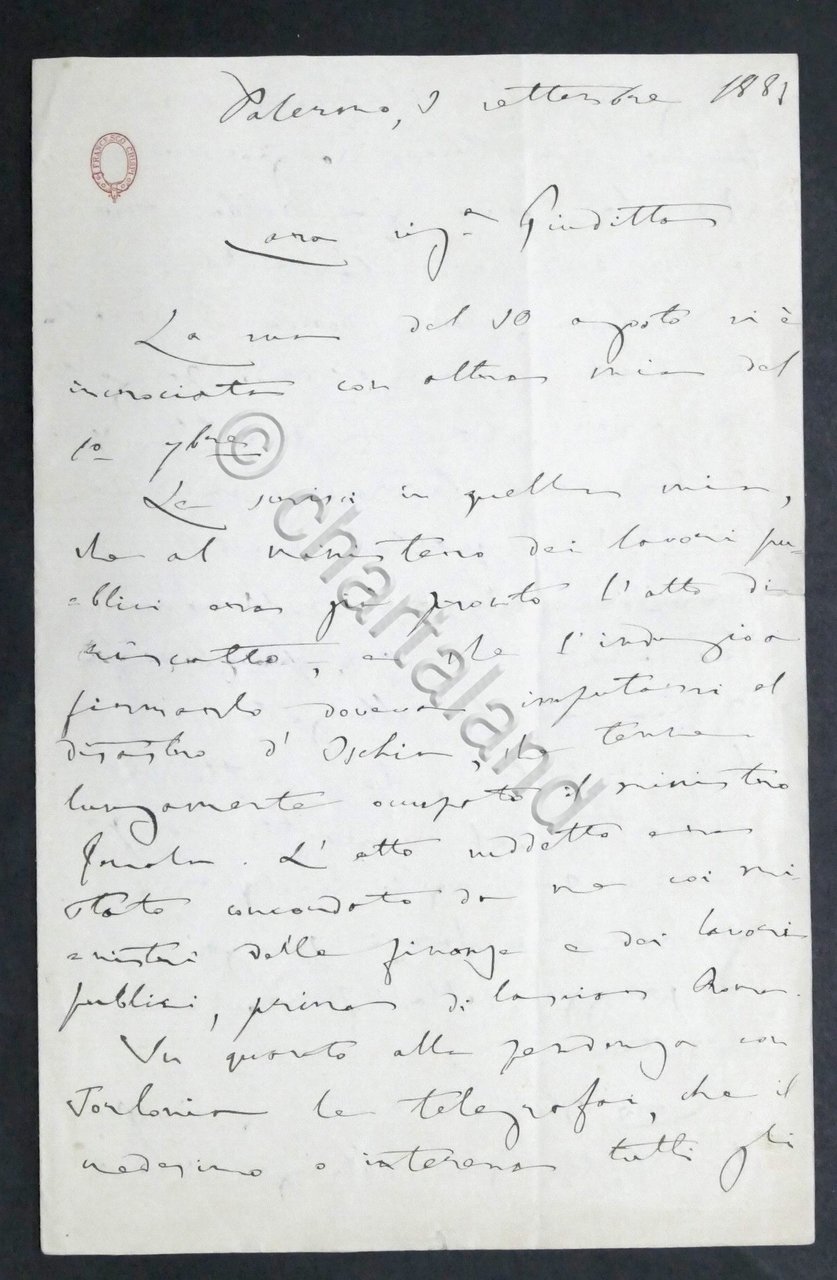 FRANCESCO CRISPI
Palermo, 9 settembre 1883
Cara sig.ª Giuditta
La sua del 30 agosto si è
incrociata con altra mia del
1º 7bre.
Le scrissi in quella mia,
che al ministero dei lavori pu=
=blici era già pronto l'atto di
riscatto, e che l'indugio a
firmarlo doveva imputarsi al
disastro d'Ischia, che tenne
lungamente occupato il ministro
Genala. L'atto suddetto era
stato concordato da me coi mi
=nistri delle finanze e dei lavori
publici, prima di lasciar Roma.
In quanto alla pendenza con
Torlonia le telegrafai, che il
medesimo interessa tutti gli
© chartaland